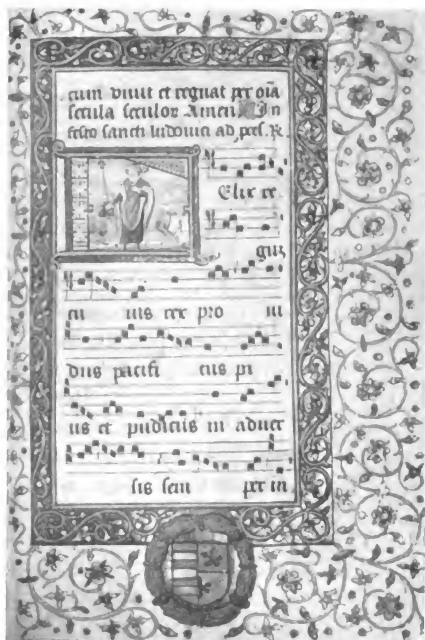 cum viuit et regnat per oīa
secula seculor Amen In
festo sancti ludouici ad, pces. R.
Elix re
gnū
cu ius rex pro ui
dus pacifi cus pi
us et pudicus in aduer
sis sem per in